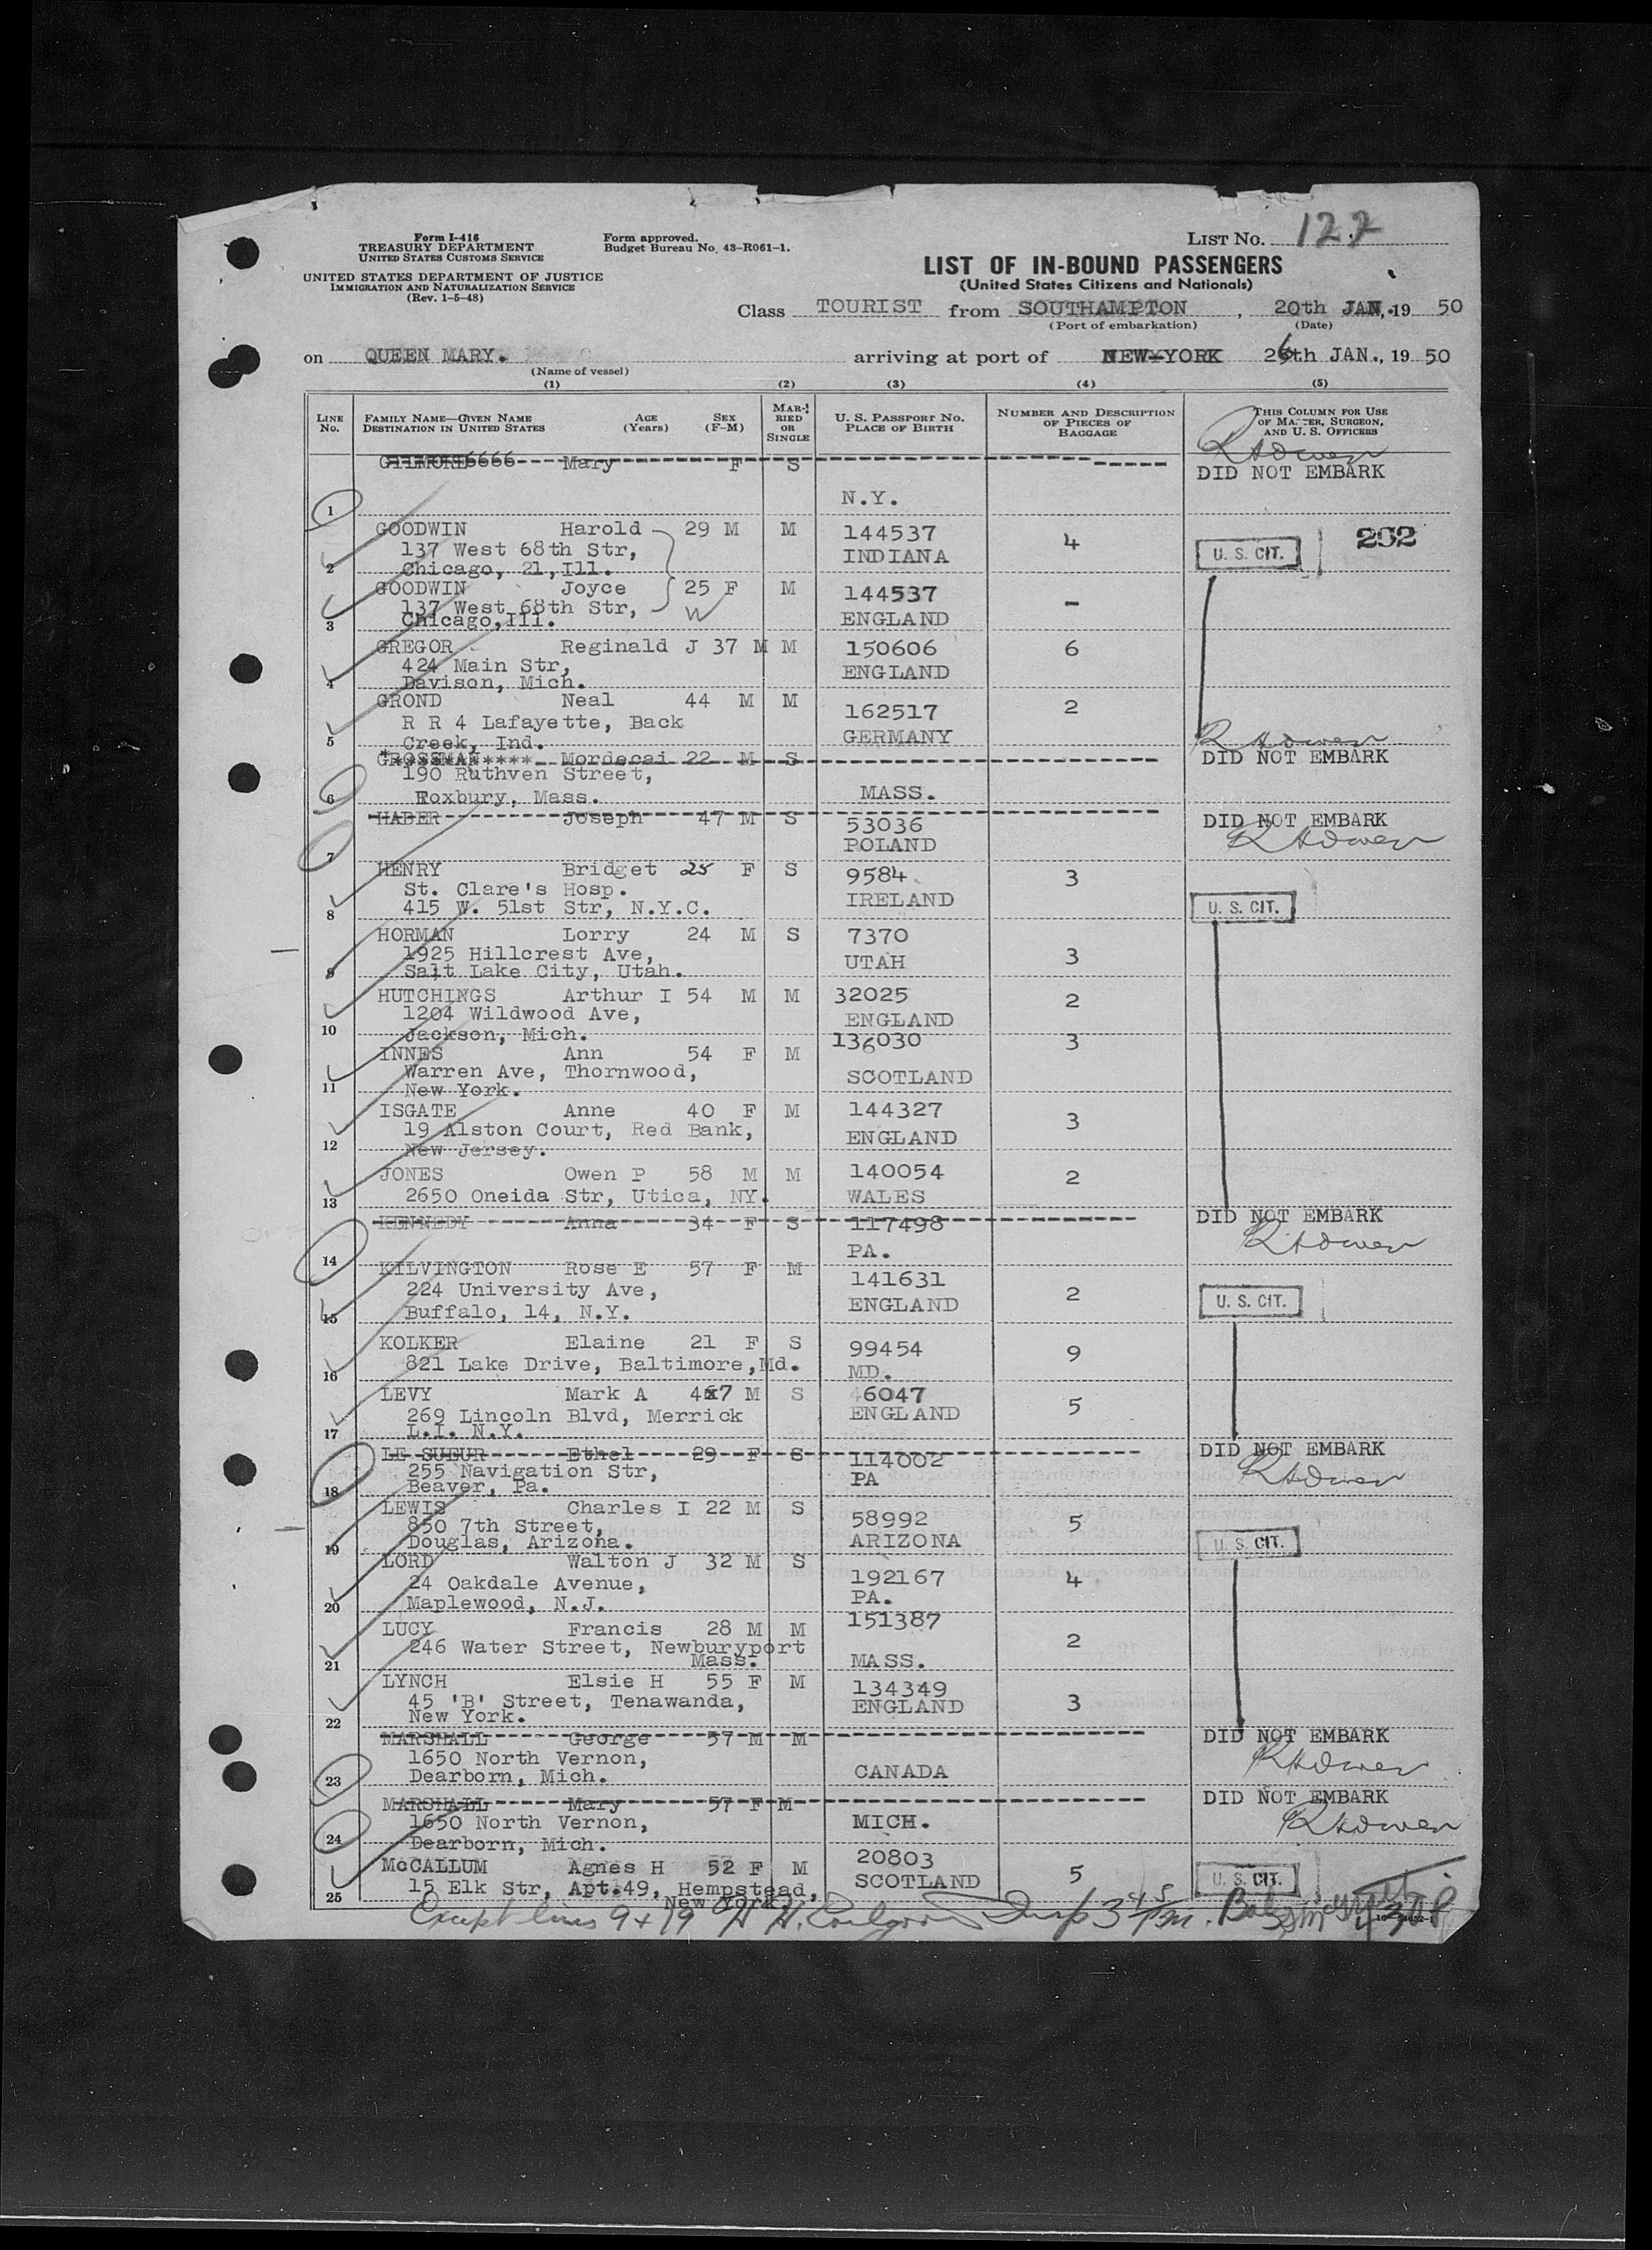 Form I-416
TREASURY DEPARTMENT
UNITED STATES CUSTOMS SERVICE
UNITED STATES DEPARTMENT OF JUSTICE
IMMIGRATION AND NATURALIZATION SERVICE
(Rev. 1-5-48)
Form approved.
Budget Bureau No. 43-R061-1.
LIST NO. 122
LIST OF IN-BOUND PASSENGERS
(United States Citizens and Nationals)
Class TOURIST from SOUTHAMPTON, 20th JAN., 19 50
(Port of embarkation) (Date)
on QUEEN MARY. arriving at port of NEW-YORK 26th JAN., 19 50
(Name of vessel)
(1) (2) (3) (4) (5)
LINE NO. FAMILY NAME—GIVEN NAME DESTINATION IN UNITED STATES AGE (Years) SEX (F-M) MARRIED OR SINGLE U. S. PASSPORT NO. PLACE OF BIRTH NUMBER AND DESCRIPTION OF PIECES OF BAGGAGE THIS COLUMN FOR USE OF MASTER, SURGEON, AND U. S. OFFICERS
GILMORE6666 Mary F S DID NOT EMBARK
1 N.Y.
GOODWIN Harold 29 M M 144537 4 U. S. CIT. 262
137 West 68th Str, INDIANA
2 Chicago, 21, Ill.
GOODWIN Joyce 25 F M 144537 -
137 West 68th Str, W ENGLAND
3 Chicago, Ill.
GREGOR Reginald J 37 M M 150606 6
424 Main Str, ENGLAND
4 Davison, Mich.
GROND Neal 44 M M 162517 2
R R 4 Lafayette, Back
5 Creek, Ind. GERMANY
GROSSMAN**** Mordecai 22 M S DID NOT EMBARK
190 Ruthven Street,
6 Roxbury, Mass. MASS.
HABER Joseph 47 M S 53036 DID NOT EMBARK
7 POLAND
HENRY Bridget 25 F S 9584 3
St. Clare's Hosp. IRELAND
8 415 W. 51st Str, N.Y.C. U. S. CIT.
HORMAN Lorry 24 M S 7370 3
1925 Hillcrest Ave, UTAH
9 Salt Lake City, Utah.
HUTCHINGS Arthur I 54 M M 32025 2
1204 Wildwood Ave, ENGLAND
10 Jackson, Mich.
INNES Ann 54 F M 136030 3
Warren Ave, Thornwood, SCOTLAND
11 New York.
ISGATE Anne 40 F M 144327 3
19 Alston Court, Red Bank, ENGLAND
12 New Jersey.
JONES Owen P 58 M M 140054 2
13 2650 Oneida Str, Utica, NY. WALES
KENNEDY Anna 34 F S 117498 DID NOT EMBARK
14 PA.
KILVINGTON Rose E 57 F M 141631 2
224 University Ave, ENGLAND U. S. CIT.
15 Buffalo, 14, N.Y.
KOLKER Elaine 21 F S 99454 9
16 821 Lake Drive, Baltimore, Md. MD.
LEVY Mark A 47 M S 46047 5
269 Lincoln Blvd, Merrick ENGLAND
17 L.I. N.Y.
LE SUEUR Ethel 29 F S 114002 DID NOT EMBARK
255 Navigation Str, PA
18 Beaver, Pa.
LEWIS Charles I 22 M S 58992 5
850 7th Street, ARIZONA
19 Douglas, Arizona. U. S. CIT.
LORD Walton J 32 M S 192167 4
24 Oakdale Avenue, PA.
20 Maplewood, N.J.
LUCY Francis 28 M M 151387 2
246 Water Street, Newburyport
21 Mass. MASS.
LYNCH Elsie H 55 F M 134349 3
45 'B' Street, Tenawanda, ENGLAND
22 New York.
MARSHALL George 57 M M DID NOT EMBARK
1650 North Vernon,
23 Dearborn, Mich. CANADA
MARSHALL Mary 57 F M DID NOT EMBARK
1650 North Vernon, MICH.
24 Dearborn, Mich.
McCALLUM Agnes H 52 F M 20803 5
25 15 Elk Str, Apt.49, Hempstead, SCOTLAND U. S. CIT.
New York.
Except lines 9 + 19